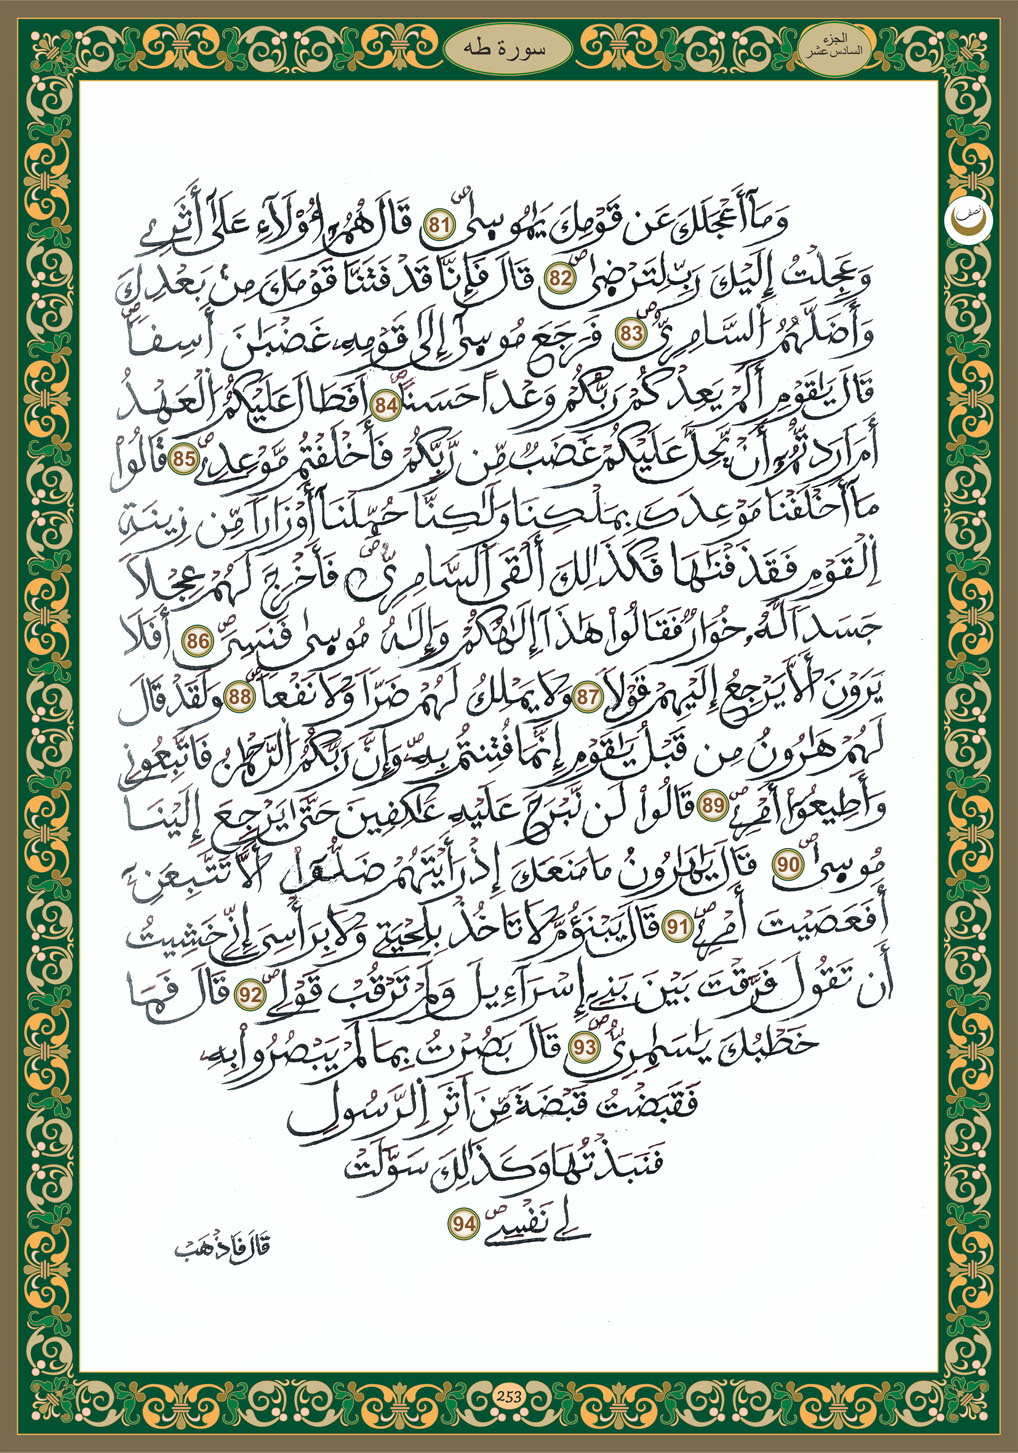 سورة طه
الجزء
السادس عشر
نصف
وَمَآ أَعْجَلَكَ عَن قَوْمِكَ يَٰمُوسِىٰ 81 قَالَ هُمُۥٓ أُوْلَآءِ عَلَىٰٓ أَثَرِے
وَعَجِلْتُ إِلَيْكَ رَبِّ لِتَرْضِىٰ 82 قَالَ فَإِنَّا قَدْ فَتَنَّا قَوْمَكَ مِنۢ بَعْدِكَ
وَأَضَلَّهُمُ اُ۬لسَّامِرِىُّ 83 فَرَجَعَ مُوسِىٰٓ إِلَىٰ قَوْمِهِۦ غَضْبَٰنَ أَسِفاً
قَالَ يَٰقَوْمِ أَلَمْ يَعِدْكُمْ رَبُّكُمْ وَعْداً حَسَناً 84 اَفَطَالَ عَلَيْكُمُ اُ۬لْعَهْدُ
أَمَ اَرَدتُّمُۥٓ أَنْ يَّحِلَّ عَلَيْكُمْ غَضَبٌ مِّن رَّبِّكُمْ فَأَخْلَفْتُم مَّوْعِدِے 85 قَالُواْ
مَآ أَخْلَفْنَا مَوْعِدَكَ بِمَلْكِنَا وَلَٰكِنَّا حُمِّلْنَآ أَوْزَاراً مِّن زِينَةِ
اِ۬لْقَوْمِ فَقَذَفْنَٰهَا فَكَذَٰلِكَ أَلْقَى اَ۬لسَّامِرِىُّ فَأَخْرَجَ لَهُمْ عِجْلاً
جَسَداً لَّهُۥ خُوَارٌ فَقَالُواْ هَٰذَآ إِلَٰهُكُمْ وَإِلَٰهُ مُوسِىٰ فَنَسِىَ 86 أَفَلَا
يَرَوْنَ أَلَّا يَرْجِعُ إِلَيْهِمْ قَوْلاً 87 وَلَا يَمْلِكُ لَهُمْ ضَرّاً وَلَا نَفْعاً 88 وَلَقَدْ قَالَ
لَهُمْ هَٰرُونُ مِن قَبْلُ يَٰقَوْمِ إِنَّمَا فُتِنتُم بِهِۦ وَإِنَّ رَبَّكُمُ اُ۬لرَّحْمَٰنُ فَاتَّبِعُونِے
وَأَطِيعُوٓاْ أَمْرِے 89 قَالُواْ لَن نَّبْرَحَ عَلَيْهِ عَٰكِفِينَ حَتَّىٰ يَرْجِعَ إِلَيْنَا
مُوسِىٰ 90 قَالَ يَٰهَٰرُونُ مَا مَنَعَكَ إِذْ رَأَيْتَهُمْ ضَلُّوٓاْ أَلَّا تَتَّبِعَنِۦٓ
أَفَعَصَيْتَ أَمْرِے 91 قَالَ يَبْنَؤُمَّ لَا تَاخُذْ بِلِحْيَتِے وَلَا بِرَأْسِىَ إِنِّے خَشِيتُ
أَن تَقُولَ فَرَّقْتَ بَيْنَ بَنِےٓ إِسْرَآءِيلَ وَلَمْ تَرْقُبْ قَوْلِے 92 قَالَ فَمَا
خَطْبُكَ يَٰسَٰمِرِىُّ 93 قَالَ بَصُرْتُ بِمَا لَمْ يَبْصُرُواْ بِهِۦ
فَقَبَضْتُ قَبْضَةً مِّنَ اَثَرِ اِ۬لرَّسُولِ
فَنَبَذْتُهَا وَكَذَٰلِكَ سَوَّلَتْ
لِے نَفْسِے 94
قَالَ فَاذْهَبْ
253